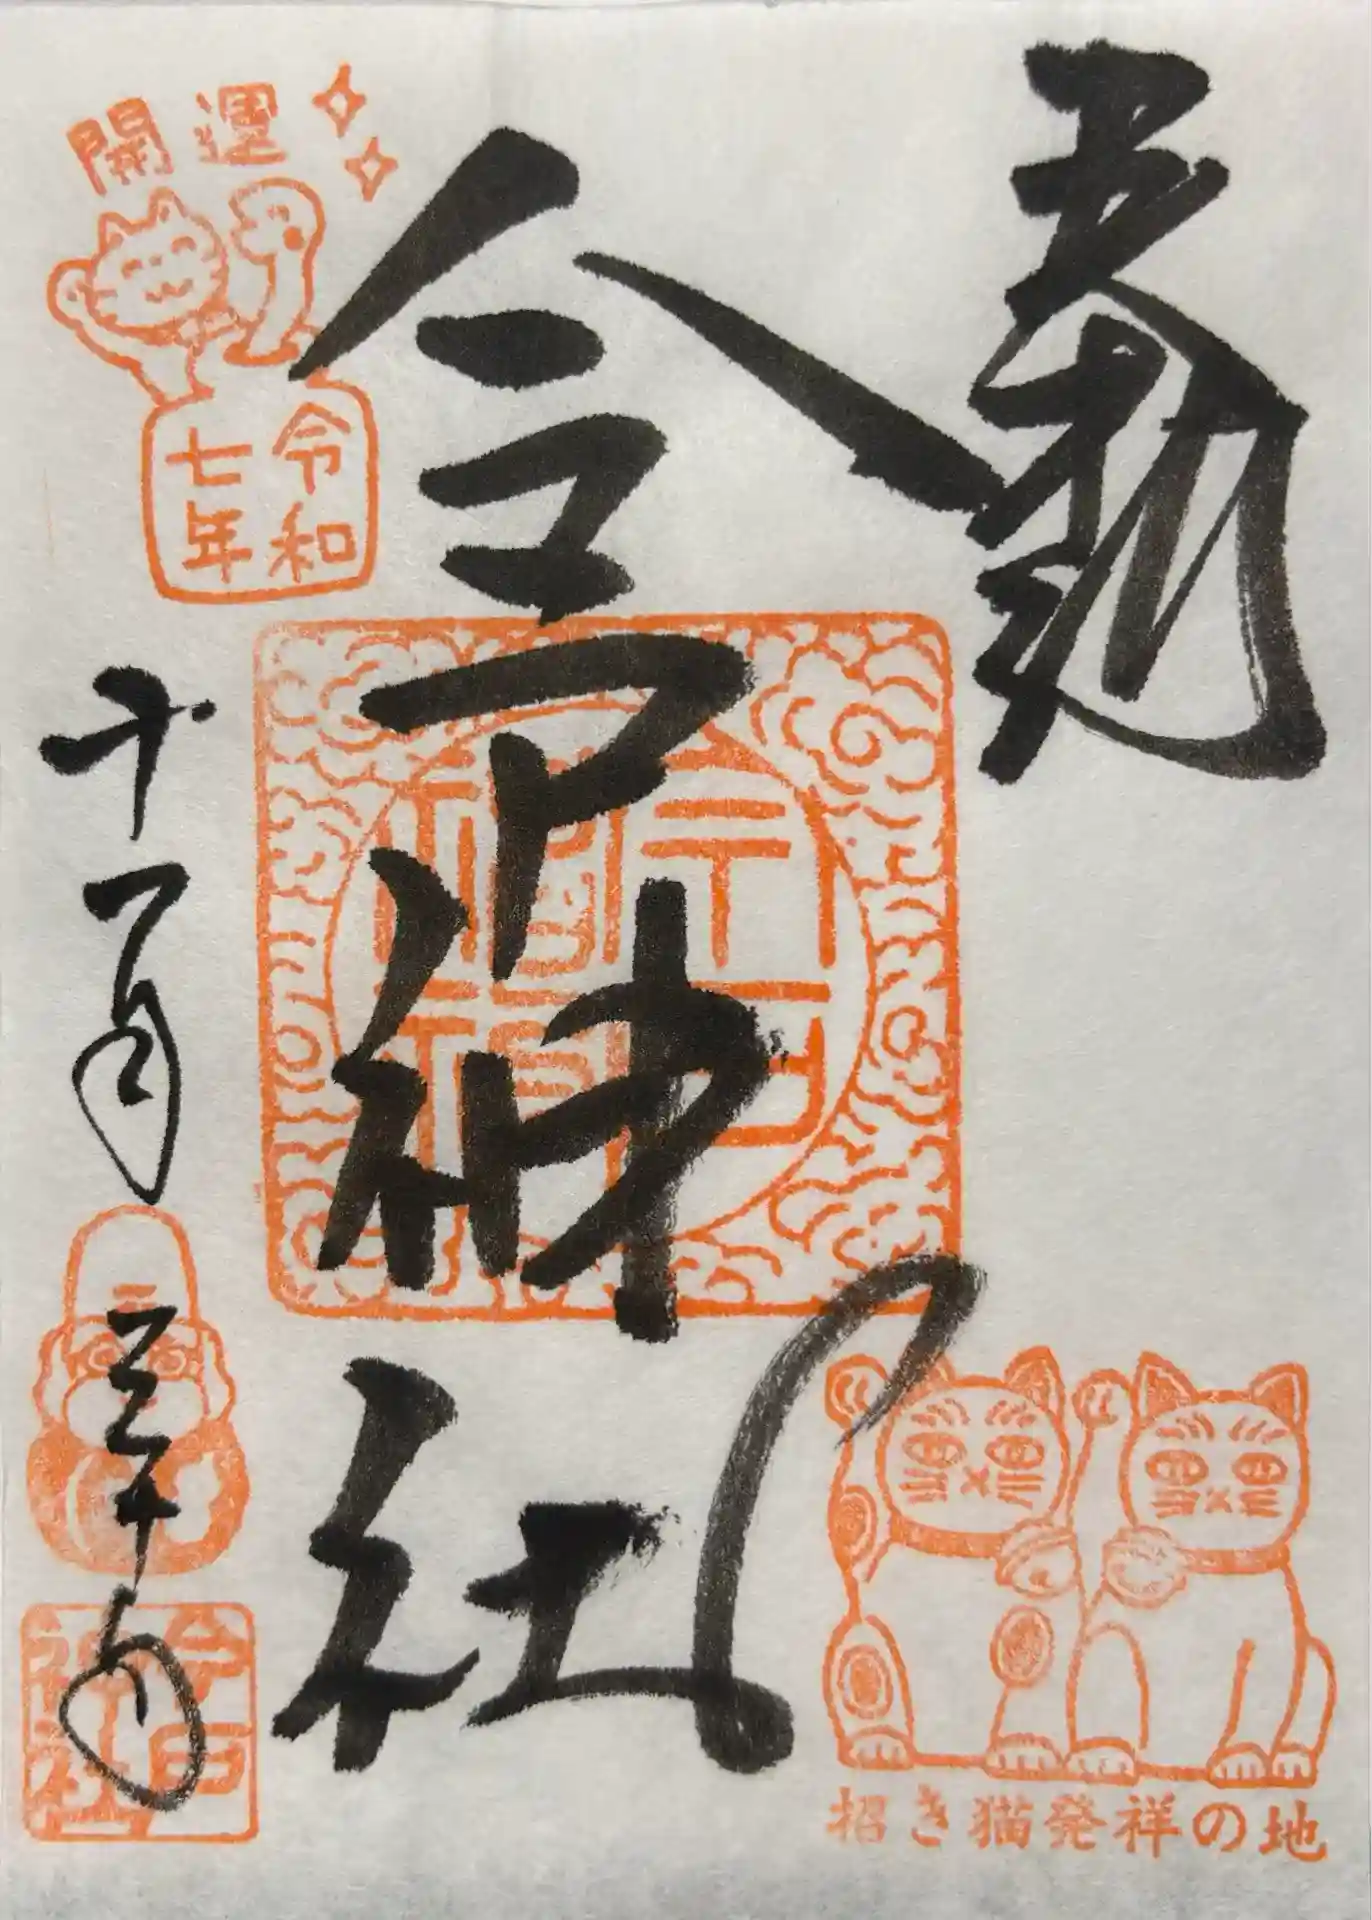 奉拝
今戸神社
開運
令和
七年
十一月三十日
今戸
神社
招き猫発祥の地